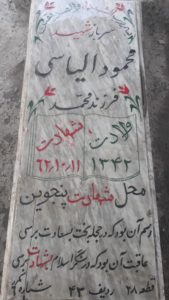 سرباز شهید
محمود الیاسی
فرزند محمد
ولادت شهادت
۱۳۴۲ ۶۲،۱۰،۱۱
محل شهادت پنجوین
آن بود که در حجله بخت بسعادت برسی
عاقبت آن بود که در سنگر اسلام بشهادت برسی
قطعه ۲۸ ردیف ۴۳ شماره